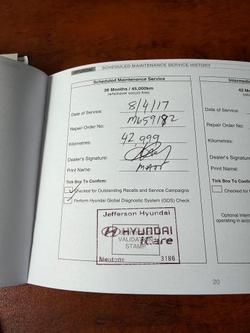 SCHEDULED MAINTENANCE SERVICE HISTORY
Scheduled Maintenance Service
36 Months / 45,000km
(whichever occurs first)
Date of Service: 8/4/17
Repair Order No: M659182
Kilometres: 42,999
Dealer's Signature:
Print Name: MATT
Tick Box To Confirm:
Checked for Outstanding Recalls and Service Campaigns
Perform Hyundai Global Diagnostic System (GDS) Check
Jefferson Hyundai
HYUNDAI
iCare
STAMP
Mentone 3186
Intermediate
Date of Service:
Repair Order No:
Kilometres:
Dealer's Signature:
Print Name:
Tick Box To Confirm:
Checked for
Optional Inter
20